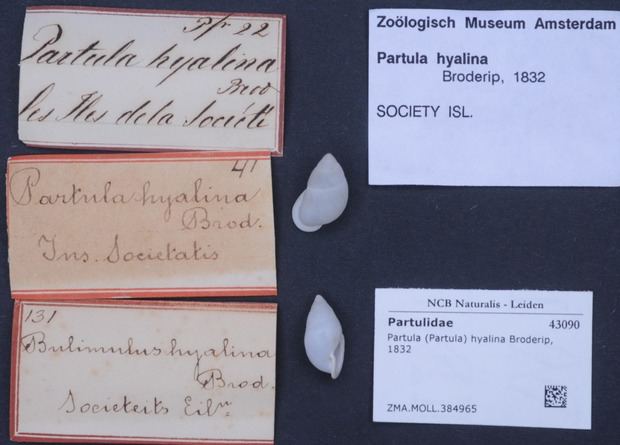 Pfr 22
Partula hyalina
Brod
les Iles de la Société
41
Partula hyalina
Brod.
Ins. Societatis
131
Bulimulus hyalina
Brod.
Societeits Eiln.
Zoölogisch Museum Amsterdam
Partula hyalina
Broderip, 1832
SOCIETY ISL.
NCB Naturalis - Leiden
Partulidae 43090
Partula (Partula) hyalina Broderip,
1832
ZMA.MOLL.384965